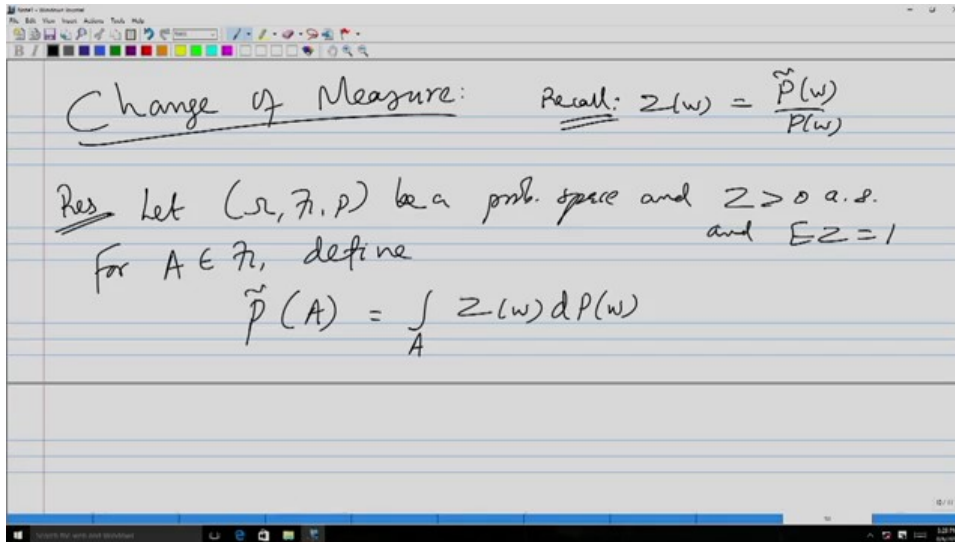 Note1 - Windows Journal
File Edit View Insert Actions Tools Help
B I
Change of Measure: Recall: Z(ω) = P̃(ω) / P(ω)
Res Let (Ω, ℱ, P) be a prob. space and Z > 0 a.s.
and EZ = 1
For A ∈ ℱ, define
P̃(A) = ∫_A Z(ω) dP(ω)
Search the web and Windows